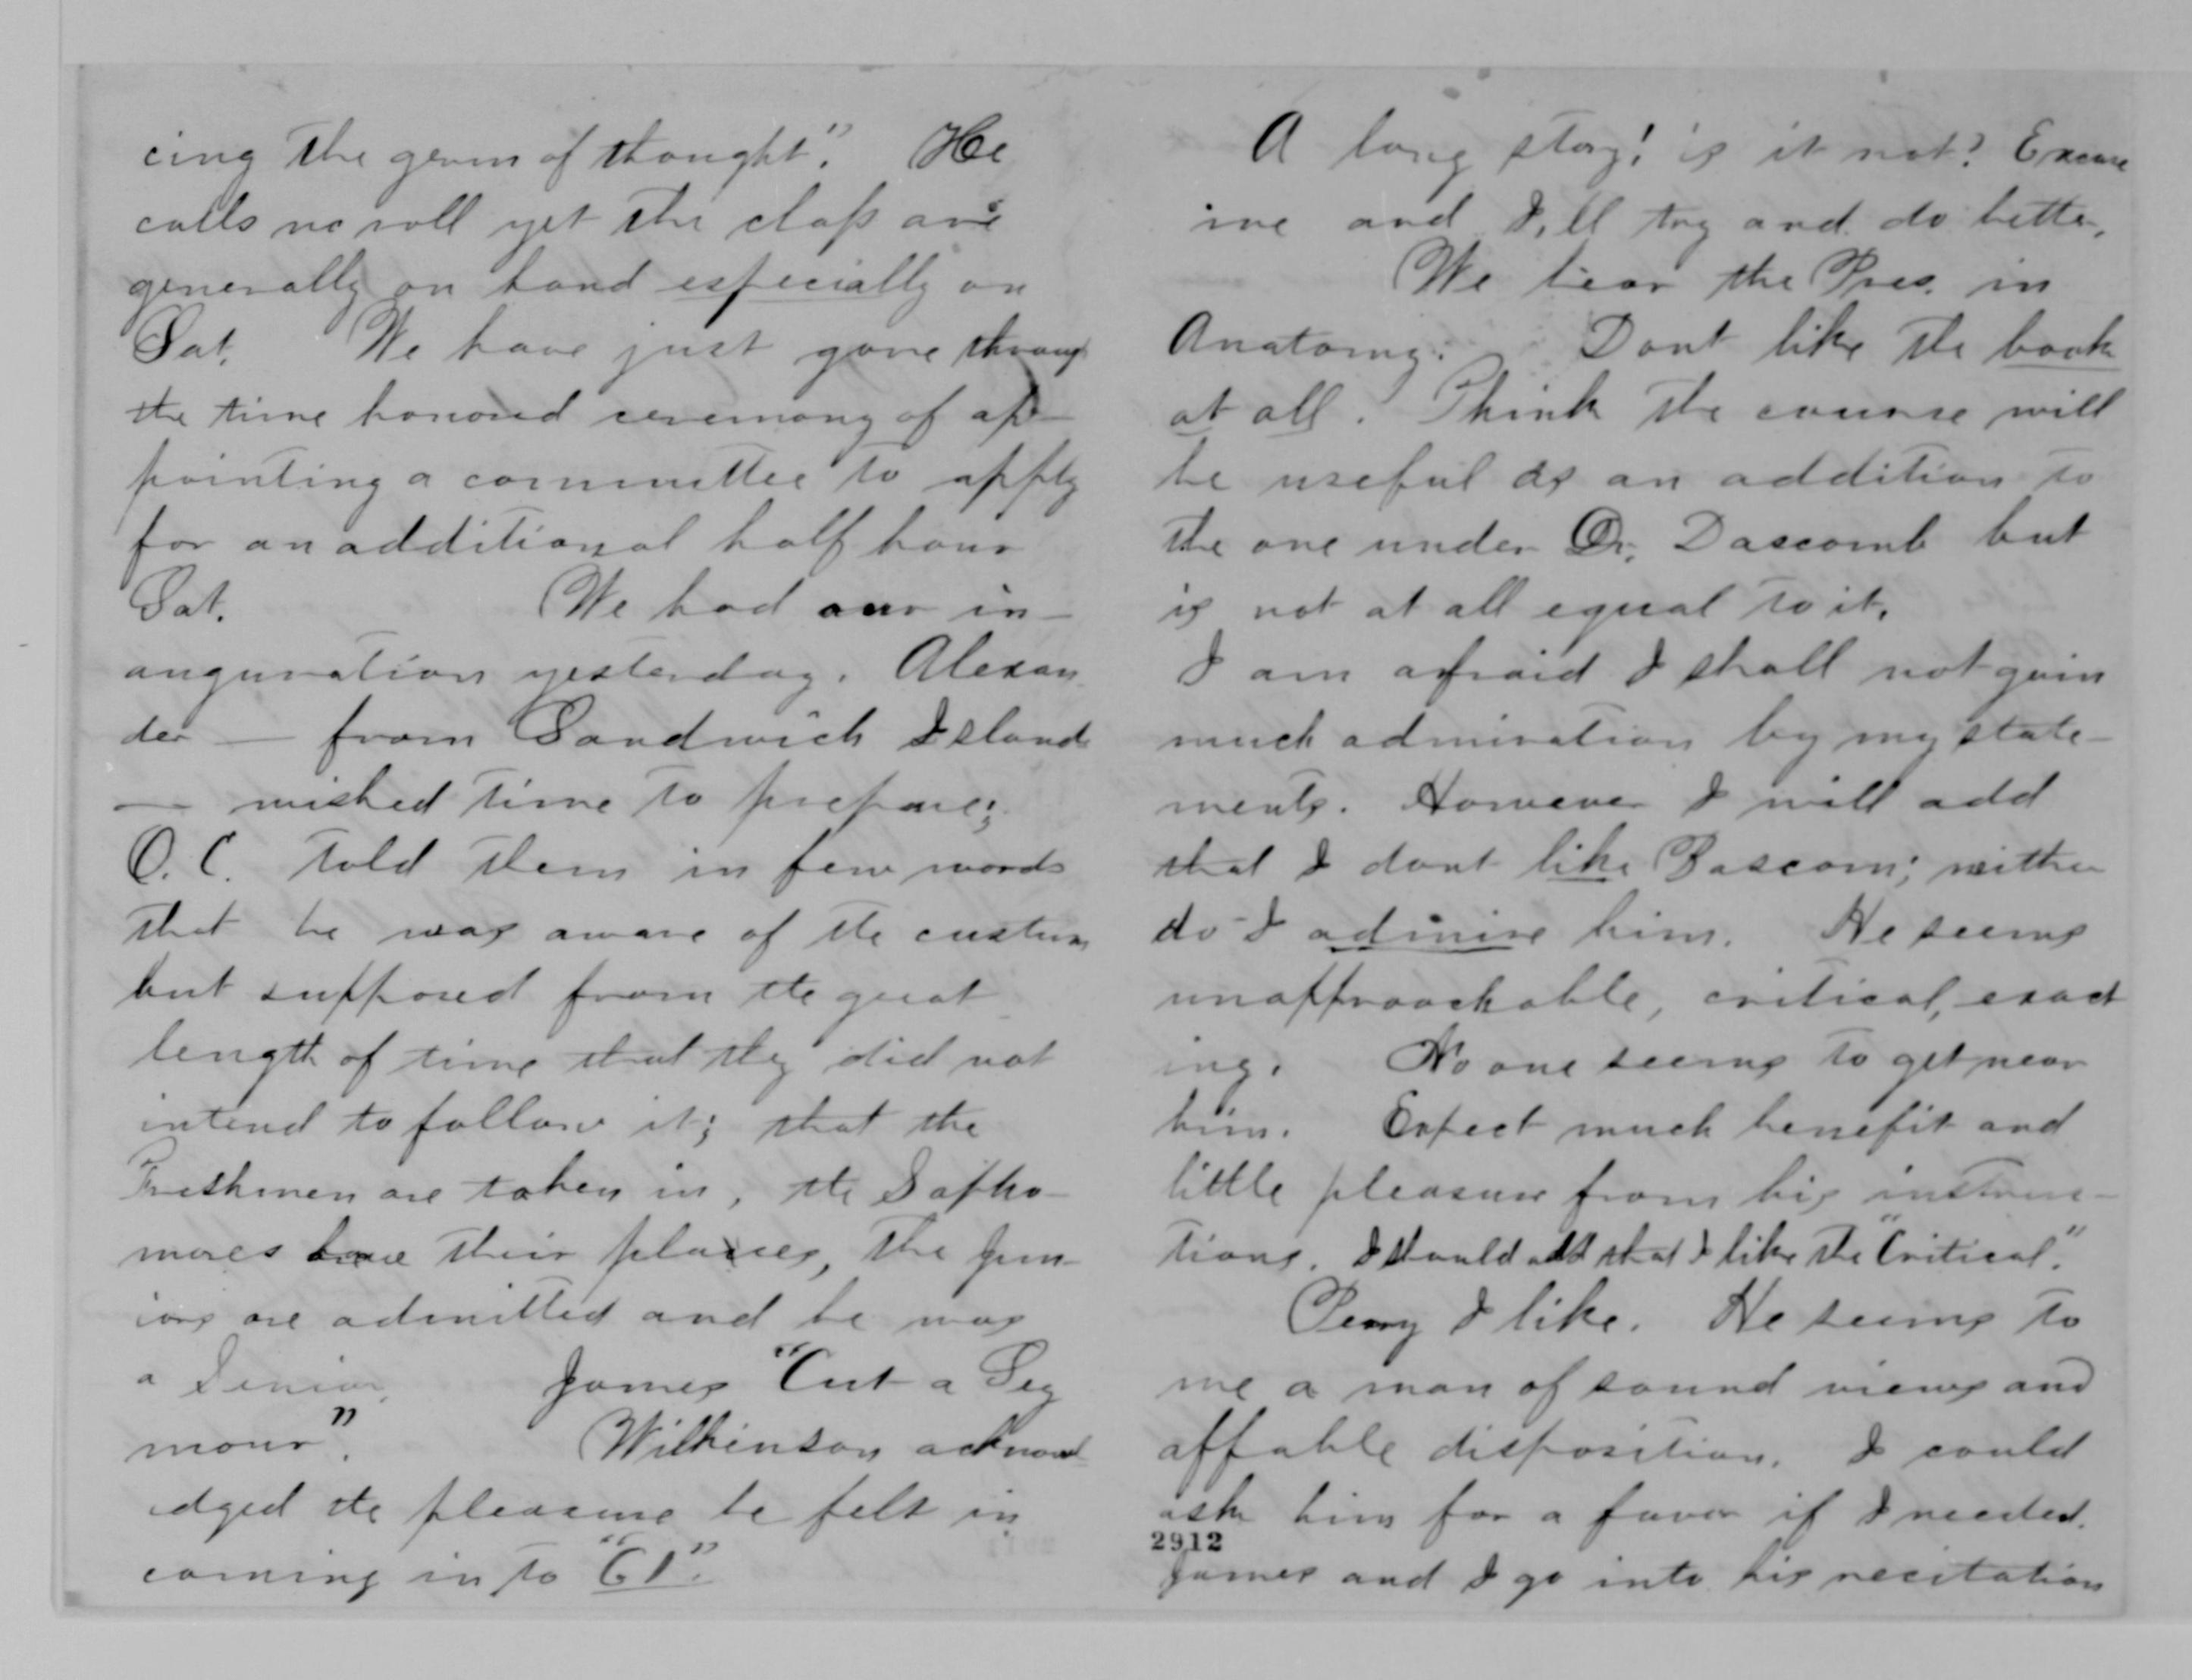 cing the germ of thought". He
calls no roll yet the class are
generally on hand especially on
Sat. We have just gone through
the time honored ceremony of ap-
pointing a committee to apply
for an additional half hour
Sat. We had our in-
auguration yesterday. Alexan
der — from Sandwich Islands
— wished time to prepare;
O. C. told them in few words
that he was aware of the custom
but supposed from the great
length of time that they did not
intend to follow it; that the
Freshmen are taken in, the Sopho-
mores have their places, the Jun-
iors are admitted and he was
a Senior. James "Cut a Sey
mour". Wilkinson acknowl
edged the pleasure he felt in
coming in to "61".
A long story! is it not? Excuse
me and I,ll try and do better.
We hear the Pres. in
Anatomy. Dont like the book
at all. Think the course will
be useful as an addition to
the one under Dr. Dascomb but
is not at all equal to it.
I am afraid I shall not gain
much admiration by my state-
ments. However I will add
that I dont like Bascom; neither
do I admire him. He seems
unapproachable, critical, exact
ing. No one seems to get near
him. Expect much benefit and
little pleasure from his instruc-
tions. I should add that I like the "Critical".
Perry I like. He seems to
me a man of sound views and
affable disposition. I could
ask him for a favor if I needed.
2912
James and I go into his recitation